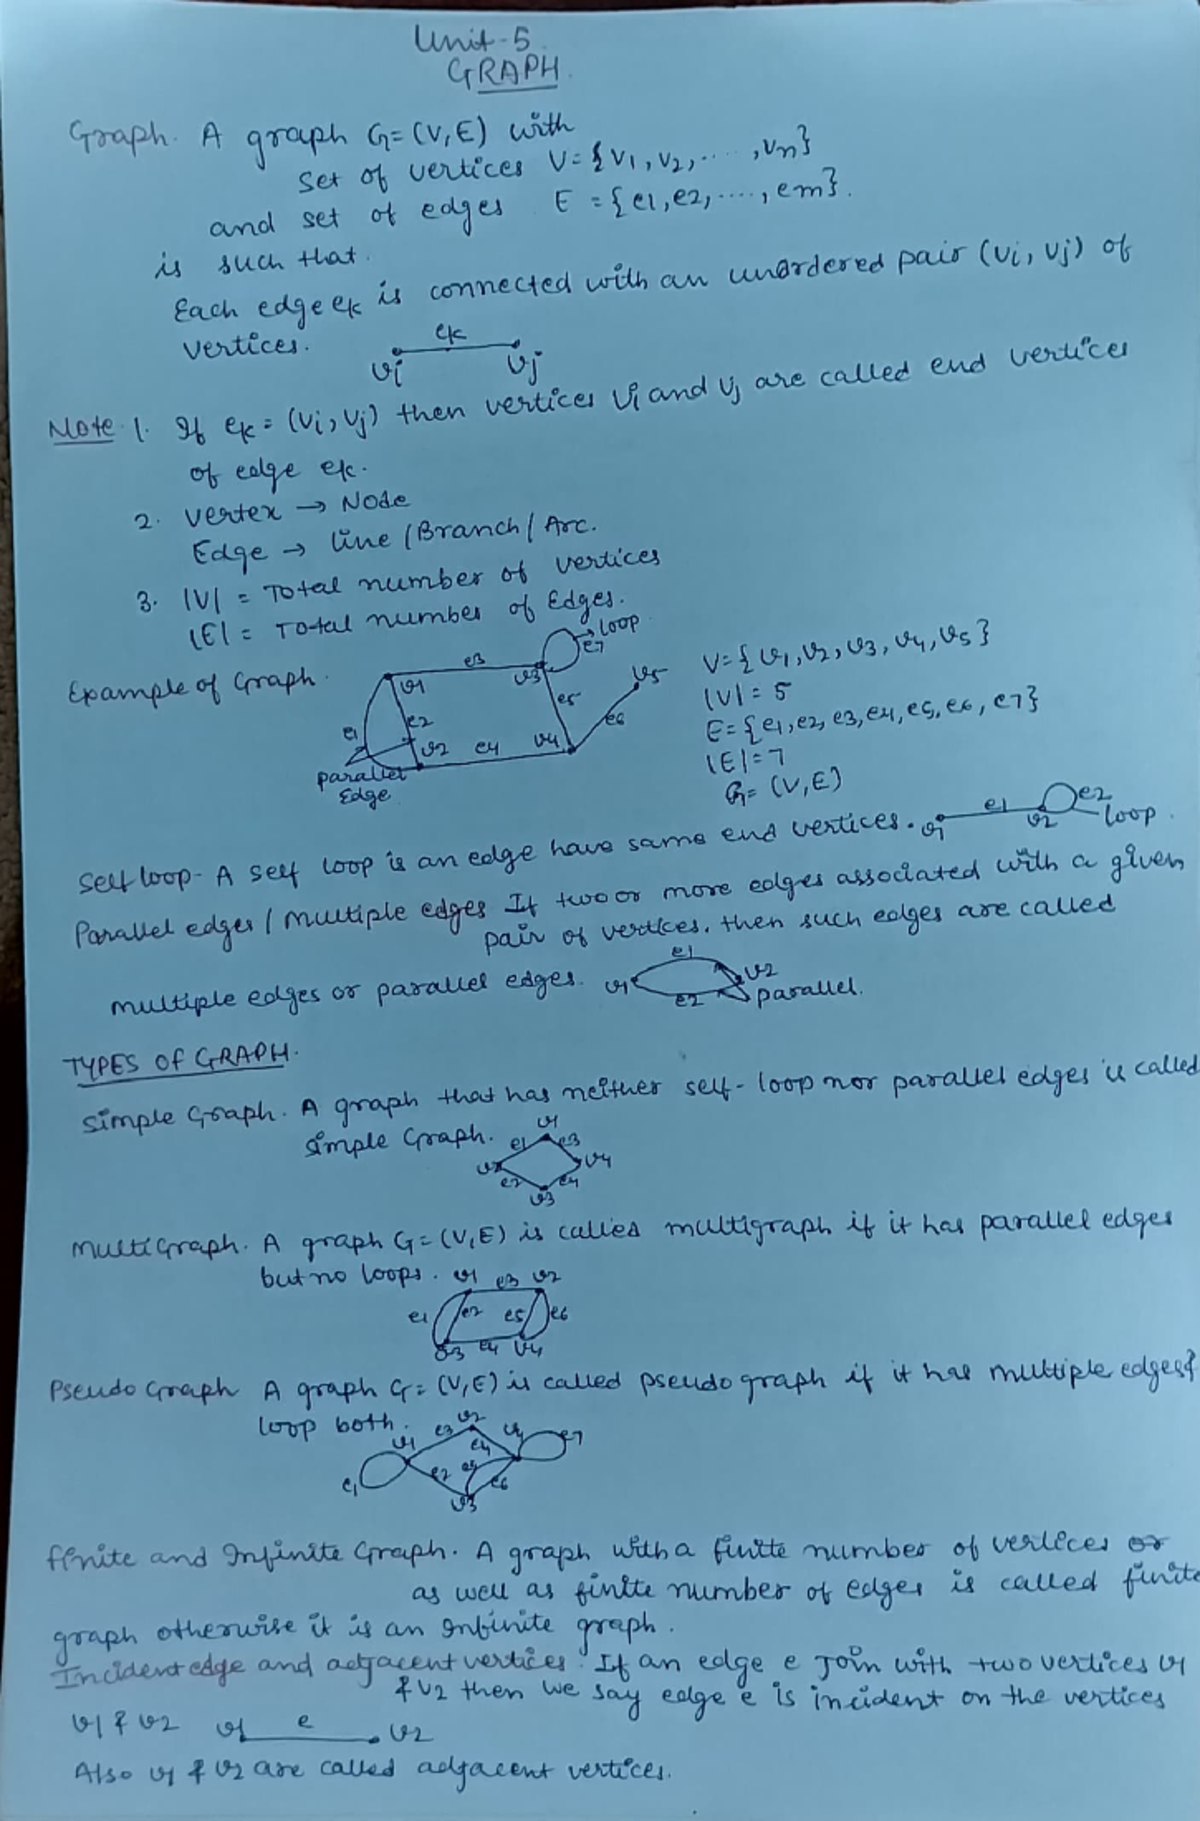 Unit-5
GRAPH.
Graph. A graph G=(V,E) with
set of vertices V={v1,v2,....,vn}
and set of edges E={e1,e2,....,em}.
is such that.
Each edge ek is connected with an unordered pair (vi, vj) of
vertices.
ek
vi vj
Note 1. If ek=(vi,vj) then vertices vi and vj are called end vertices
of edge ek.
2. vertex → Node
Edge → line/Branch/Arc.
3. |V| = Total number of vertices
|E| = Total number of Edges.
Example of Graph.
e3 e7 loop
v1 v3 v5
e1 e2 e5 e6
v2 e4 v4
parallel
Edge
V={v1,v2,v3,v4,v5}
|V|=5
E={e1,e2,e3,e4,e5,e6,e7}
|E|=7
G=(V,E)
Self loop- A self loop is an edge have same end vertices. v1 e1 v2 e2 loop.
Parallel edges/multiple edges If two or more edges associated with a given
pair of vertices. then such edges are called
multiple edges or parallel edges. v1 e1 e2 v2 parallel.
TYPES OF GRAPH.
Simple Graph. A graph that has neither self-loop nor parallel edges is called
simple Graph.
v1
e1 e3
v2 v4
e2 e4
v3
MultiGraph. A graph G=(V,E) is called multigraph if it has parallel edges
but no loops. v1 e3 v2
e1 e2 e5 e6
v3 e4 v4
Pseudo Graph A graph G=(V,E) is called pseudo graph if it has multiple edges &
loop both.
v1 e3 v2 v4 e7
e4
e1 e2 e5 e6
v3
finite and Infinite Graph. A graph with a finite number of vertices or
as well as finite number of edges is called finite
graph otherwise it is an Infinite graph.
Incident edge and adjacent vertices. If an edge e join with two vertices v1
& v2 then we say edge e is incident on the vertices
v1 & v2 v1 e v2
Also v1 & v2 are called adjacent vertices.